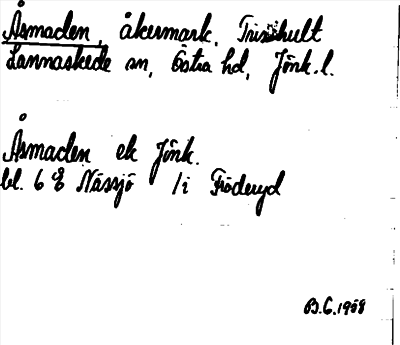 Åsmaden, åkermark, Trishult
Lannaskede sn, Östra hd, Jönk.l.
Åsmaden ek Jönk.
bl. 6 E Nässjö /i Fröderyd
B.G. 1958